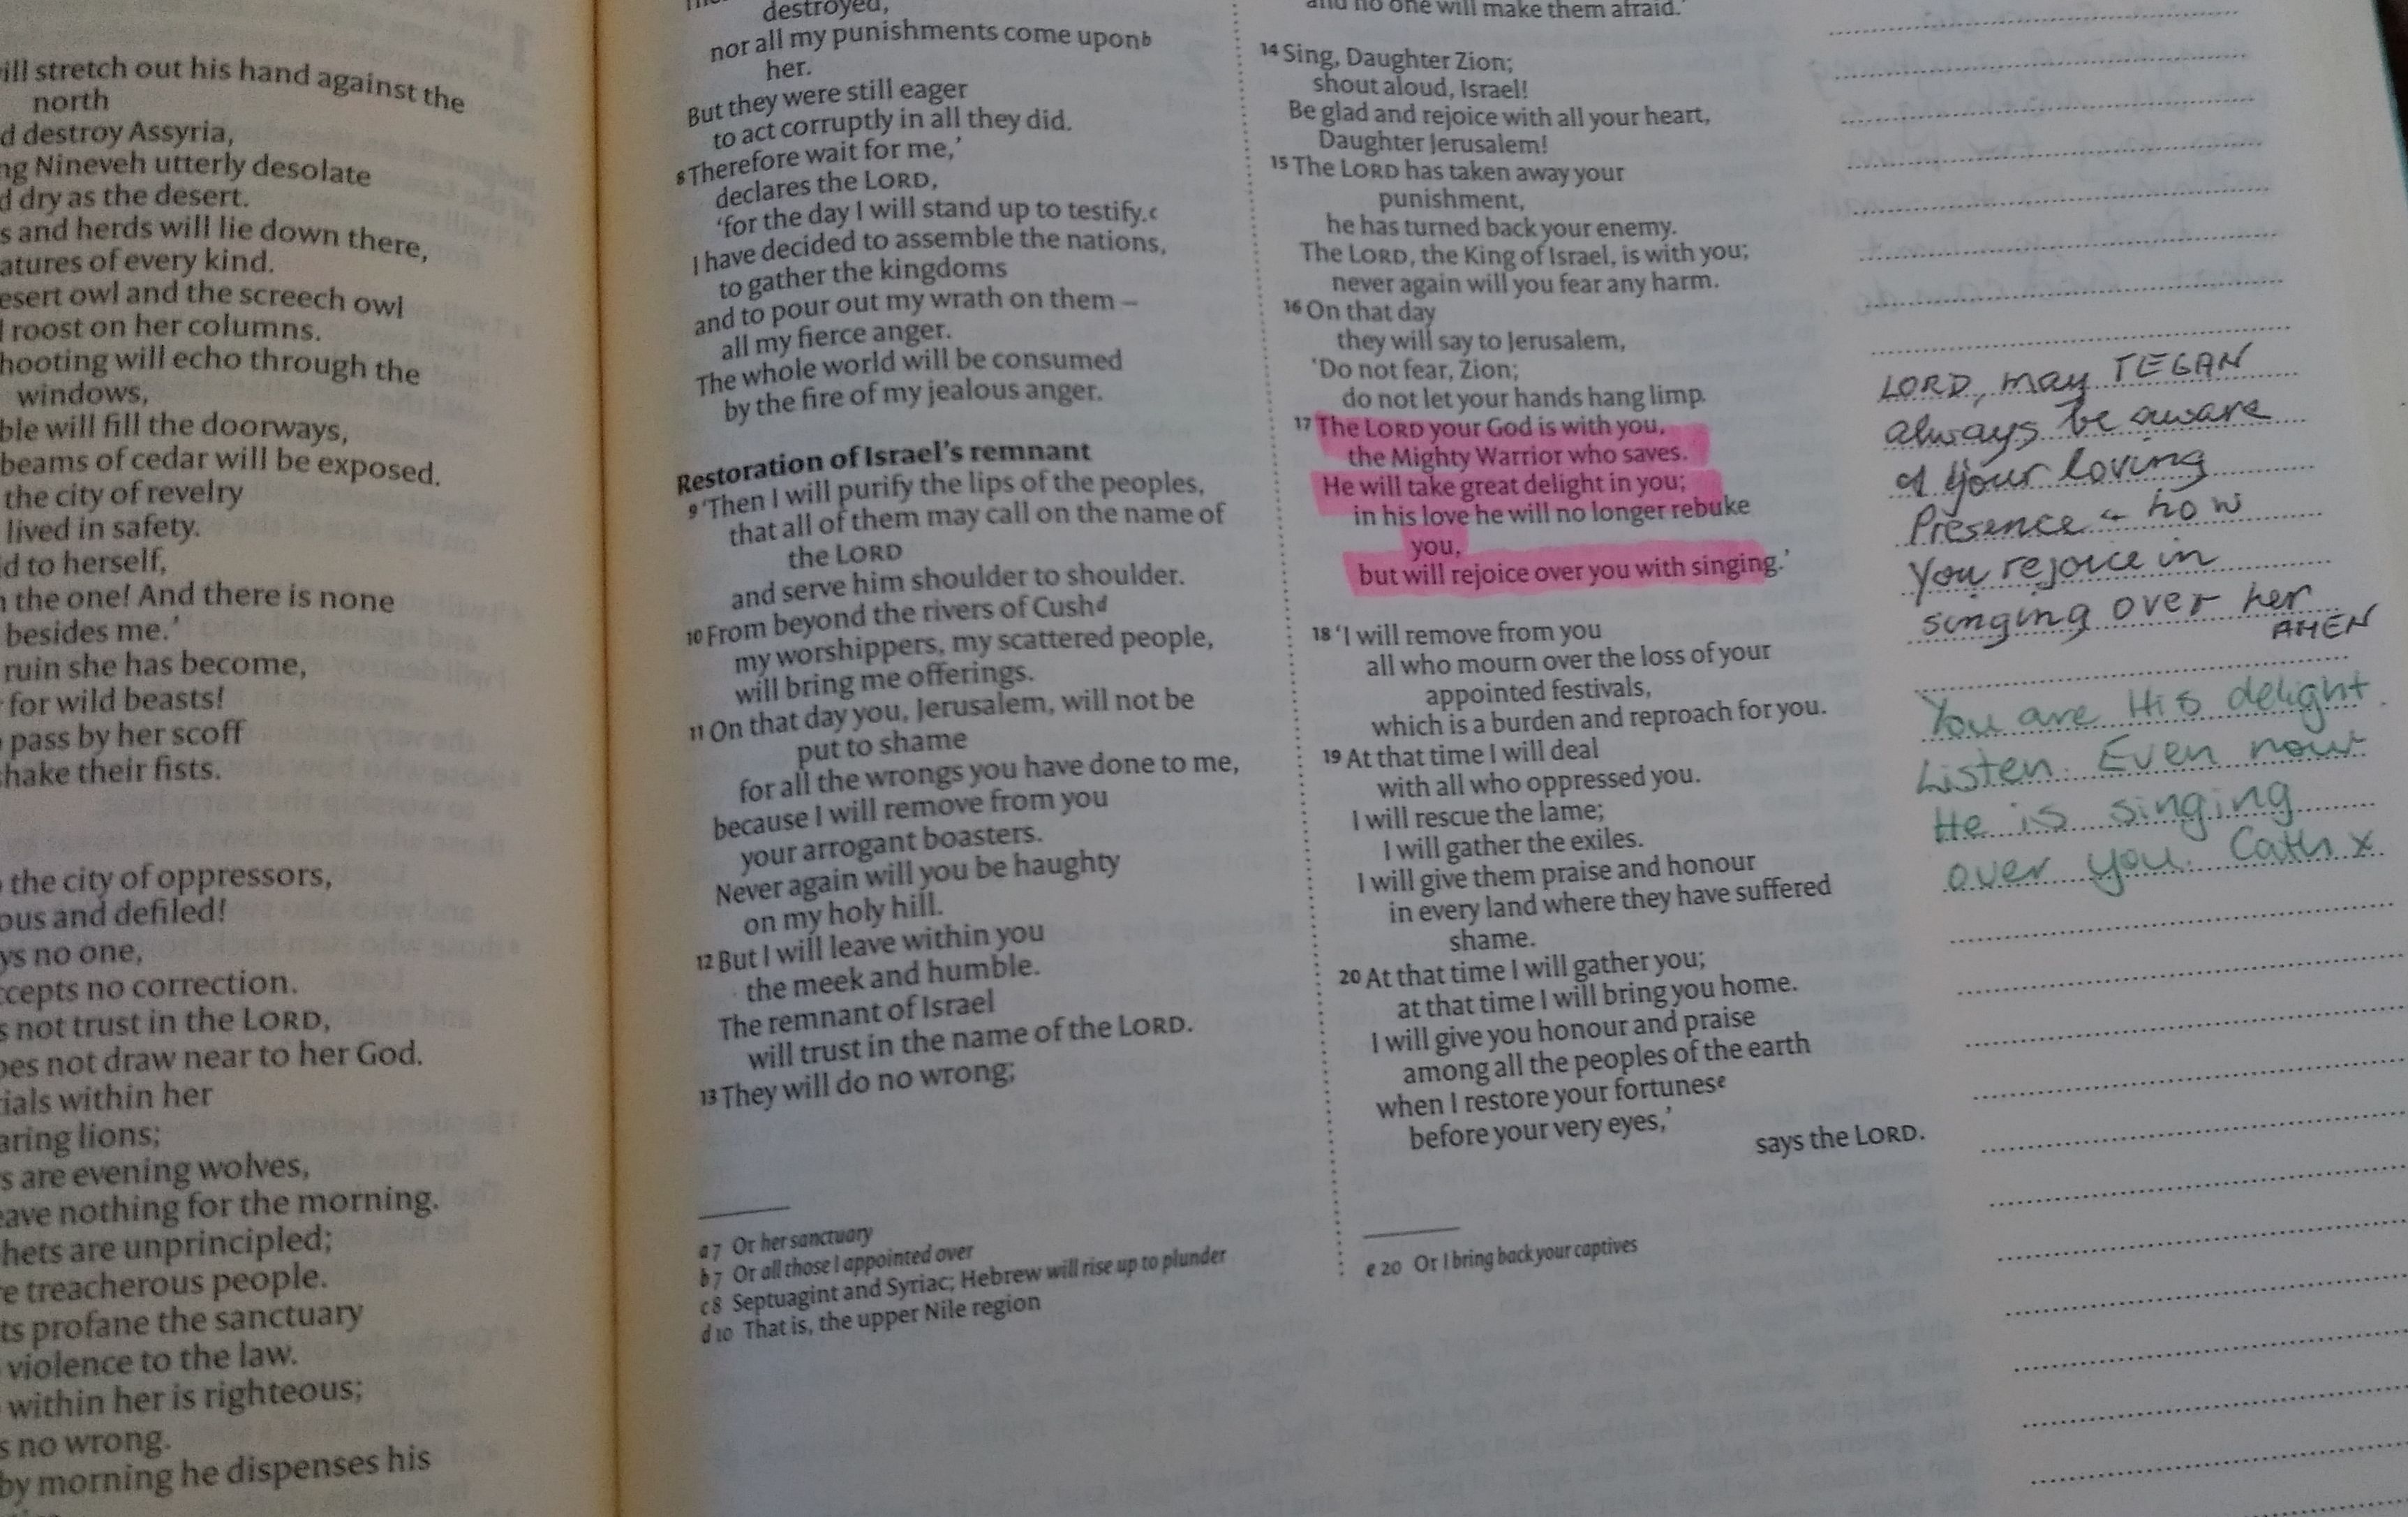 ill stretch out his hand against the
north
d destroy Assyria,
ng Nineveh utterly desolate
d dry as the desert.
s and herds will lie down there,
atures of every kind.
esert owl and the screech owl
l roost on her columns.
hooting will echo through the
windows,
ble will fill the doorways,
beams of cedar will be exposed.
the city of revelry
lived in safety.
id to herself,
the one! And there is none
besides me.’
ruin she has become,
for wild beasts!
pass by her scoff
hake their fists.
the city of oppressors,
ous and defiled!
ys no one,
ccepts no correction.
s not trust in the LORD,
oes not draw near to her God.
ials within her
aring lions;
s are evening wolves,
eave nothing for the morning.
hets are unprincipled;
re treacherous people.
ts profane the sanctuary
violence to the law.
within her is righteous;
s no wrong.
by morning he dispenses his
destroyed,
nor all my punishments come upon b
her.
But they were still eager
to act corruptly in all they did.
8 Therefore wait for me,’
declares the LORD,
‘for the day I will stand up to testify. c
I have decided to assemble the nations,
to gather the kingdoms
and to pour out my wrath on them –
all my fierce anger.
The whole world will be consumed
by the fire of my jealous anger.
Restoration of Israel’s remnant
9 ‘Then I will purify the lips of the peoples,
that all of them may call on the name of
the LORD
and serve him shoulder to shoulder.
10 From beyond the rivers of Cush d
my worshippers, my scattered people,
will bring me offerings.
11 On that day you, Jerusalem, will not be
put to shame
for all the wrongs you have done to me,
because I will remove from you
your arrogant boasters.
Never again will you be haughty
on my holy hill.
12 But I will leave within you
the meek and humble.
The remnant of Israel
will trust in the name of the LORD.
13 They will do no wrong;
a 7 Or her sanctuary
b 7 Or all those I appointed over
c 8 Septuagint and Syriac; Hebrew will rise up to plunder
d 10 That is, the upper Nile region
and no one will make them afraid.’
14 Sing, Daughter Zion;
shout aloud, Israel!
Be glad and rejoice with all your heart,
Daughter Jerusalem!
15 The LORD has taken away your
punishment,
he has turned back your enemy.
The LORD, the King of Israel, is with you;
never again will you fear any harm.
16 On that day
they will say to Jerusalem,
‘Do not fear, Zion;
do not let your hands hang limp.
17 The LORD your God is with you,
the Mighty Warrior who saves.
He will take great delight in you;
in his love he will no longer rebuke
you,
but will rejoice over you with singing.’
18 ‘I will remove from you
all who mourn over the loss of your
appointed festivals,
which is a burden and reproach for you.
19 At that time I will deal
with all who oppressed you.
I will rescue the lame;
I will gather the exiles.
I will give them praise and honour
in every land where they have suffered
shame.
20 At that time I will gather you;
at that time I will bring you home.
I will give you honour and praise
among all the peoples of the earth
when I restore your fortunes e
before your very eyes,’
says the LORD.
e 20 Or I bring back your captives
LORD, may TEGAN
always be aware
of your loving
Presence + how
You rejoice in
singing over her
AMEN
You are His delight.
Listen. Even now
He is singing
over you. Cath x